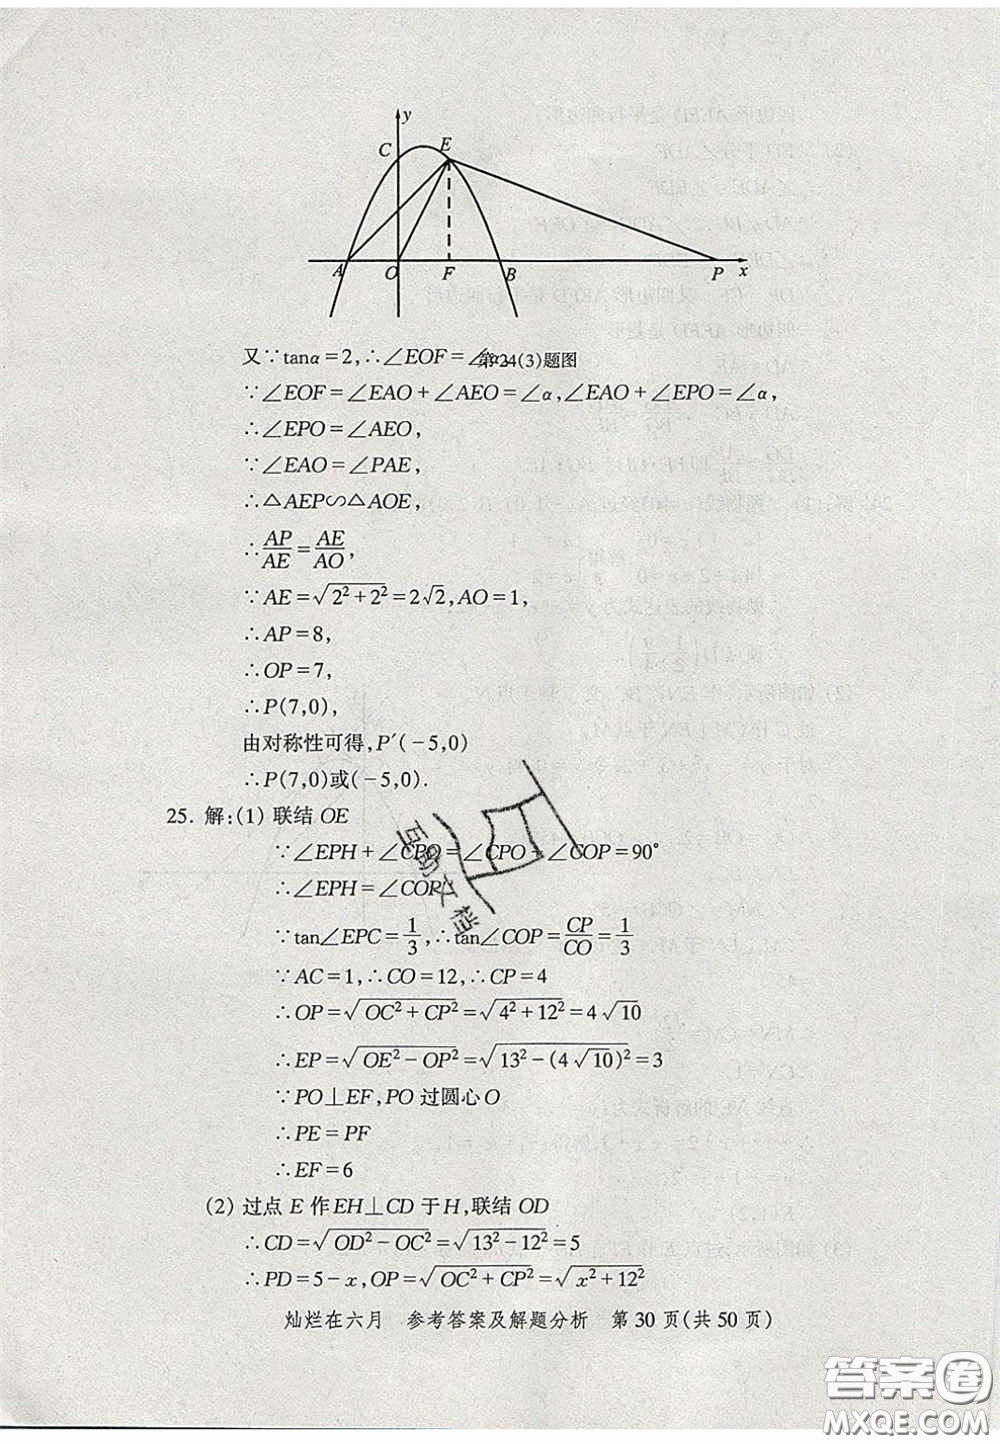 y
C
E
A
O
F
B
P
x
第24(3)题图
又∵tanα=2,∴∠EOF=∠α
∵∠EOF=∠EAO+∠AEO=∠α,∠EAO+∠EPO=∠α,
∴∠EPO=∠AEO,
∵∠EAO=∠PAE,
∴△AEP∽△AOE,
∴AP/AE=AE/AO,
∵AE=√(2²+2²)=2√2,AO=1,
∴AP=8,
∴OP=7,
∴P(7,0),
由对称性可得,P′(-5,0)
∴P(7,0)或(-5,0).
25. 解:(1) 联结OE
∵∠EPH+∠CPO=∠CPO+∠COP=90°
∴∠EPH=∠COP
∵tan∠EPC=1/3,∴tan∠COP=CP/CO=1/3
∵AC=1,∴CO=12,∴CP=4
∴OP=√(OC²+CP²)=√(4²+12²)=4√10
∴EP=√(OE²-OP²)=√(13²-(4√10)²)=3
∵PO⊥EF,PO过圆心O
∴PE=PF
∴EF=6
(2) 过点E作EH⊥CD于H,联结OD
∴CD=√(OD²-OC²)=√(13²-12²)=5
∴PD=5-x,OP=√(OC²+CP²)=√(x²+12²)
灿烂在六月 参考答案及解题分析 第30页(共50页)
互助文档
答案圈
MXQE.COM